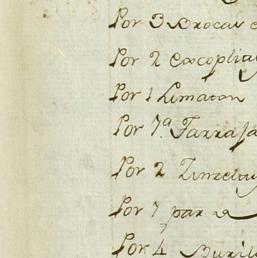 Por 3 Brocas
Por 2 escoplia
Por 1 Limaton
Por 7a Farraja
Por 2 Zinzelu
Por 1 par
Por 4 Buril